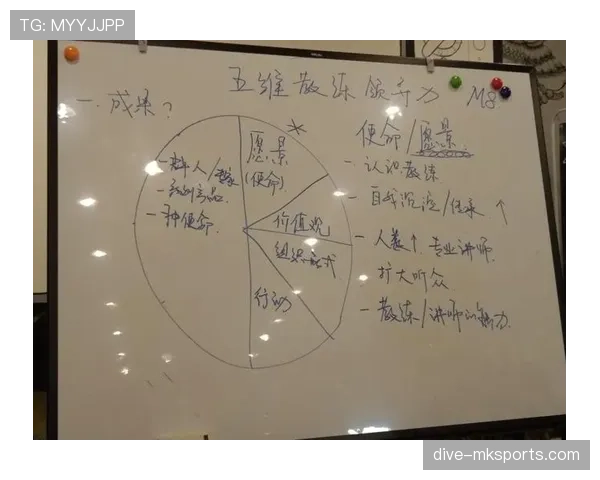 TG: MYYJJPP
五维教练领导力 M8
一. 成果?
愿景
(使命)
价值观
组织形式
行动
一群人/
一种使命
使命/愿景
- 认识教练
- 自我沉淀/传承 ↑
- 人数↑. 专业讲师.
扩大听众
- 教练/讲师的能力.
dive-mksports.com